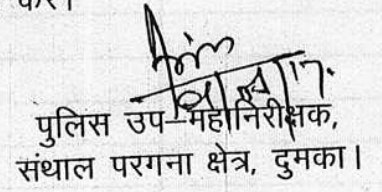 करें।
पुलिस उप-महानिरीक्षक,
संथाल परगना क्षेत्र, दुमका।